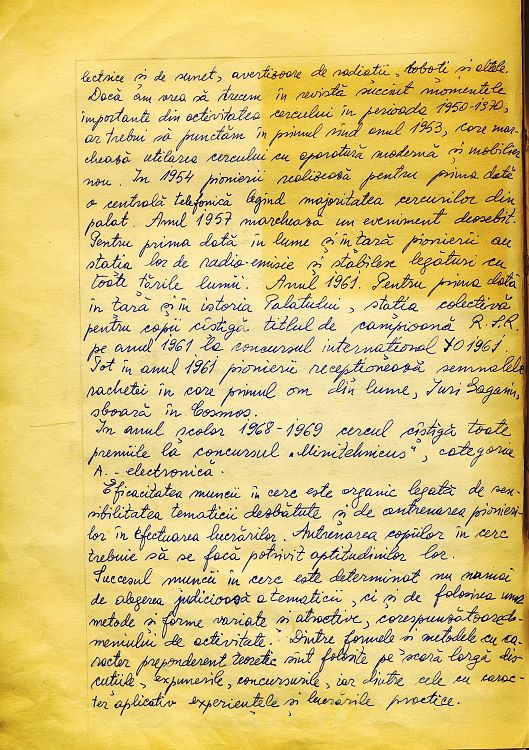 lectrice și de sunet, avertizoare de radiații, roboți și altele.
Dacă am vrea să trecem în revistă succint momentele
importante din activitatea cercului în perioada 1950-1970,
ar trebui să punctăm în primul rînd anul 1953, care mar-
chează utilarea cercului cu aparatură modernă și mobilier
nou. In 1954 pionierii realizează pentru prima dată
o centrală telefonică legind majoritatea cercurilor din
palat. Anul 1957 marchează un eveniment deosebit.
Pentru prima dată în lume și în țară pionierii au
stația lor de radio-emisie și stabilesc legături cu
toate țările lumii. Anul 1961. Pentru prima dată
în țară și în istoria Palatului, stația colectivă
pentru copii cîștigă titlul de campioană R.P.R.
pe anul 1961 la concursul internațional YO 1961.
Tot în anul 1961 pionierii recepționează semnalele
rachetei în care primul om din lume, Iuri Gagarin,
sboară în Cosmos.
In anul școlar 1968-1969 cercul cîștigă toate
premiile la concursul „Minitehnicus", categoria
A. - electronică.
Eficacitatea muncii în cerc este organic legată de sen-
sibilitatea tematicii dezbătute și de antrenarea pionieri-
lor în efectuarea lucrărilor. Antrenarea copiilor în cerc
trebuie să se facă potrivit aptitudinilor lor.
Succesul muncii în cerc este determinat nu numai
de alegerea judicioasă a tematicii, ci și de folosirea unor
metode și forme variate și atractive, corespunzătoare do-
meniului de activitate. Dintre formele și metodele cu ca-
racter preponderent teoretic sînt folosite pe scară largă dis-
cuțiile, expunerile, concursurile, iar dintre cele cu carac-
ter aplicativ experiențele și lucrările practice.